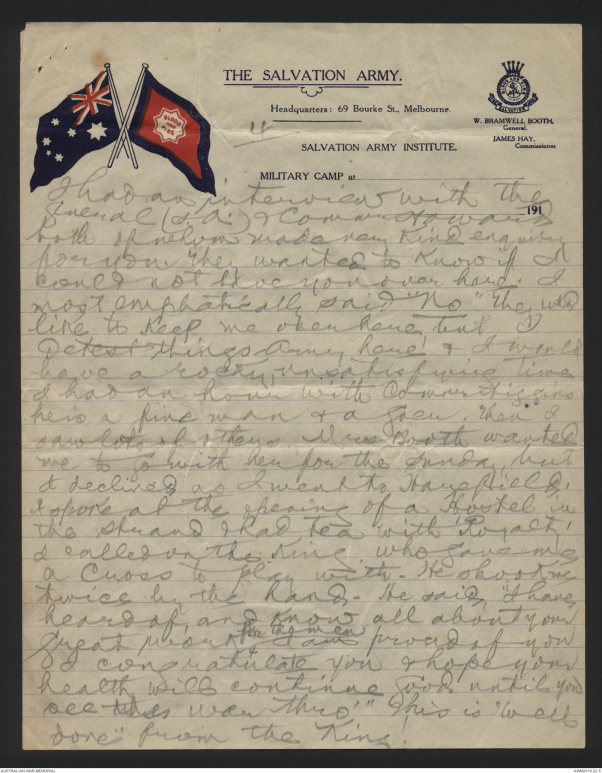 THE SALVATION ARMY.
Headquarters: 69 Bourke St., Melbourne.
BLOOD AND FIRE
W. BRAMWELL BOOTH,
General.
JAMES HAY,
Commissioner.
4
SALVATION ARMY INSTITUTE,
MILITARY CAMP at
191
I had an interview with the
General (S.A.) & Commr Howard
both of whom made very kind enquiry
for you. They wanted to know if I
could not have you over here. I
most emphatically said "No" They wd
like to keep me over here, but I
Detest things Army here & I would
have a rocky, unsatisfying time
I had an hour with Commr Higgins
he is a fine man & a goer. Then I
saw lots of others. Mrs Booth wanted
me to go with her for the Sunday, but
I declined as I went to Harefield.
I spoke at the opening of a Hostel in
the Strand & had tea with 'Royalty'
I called on the King who gave me
a Cross to play with. He shook me
twice by the hand. He said, "I have
heard of, and know all about your
great work for the men & I am proud of you
I congratulate you & hope your
health will continue good until you
see this war thro'" This is "well
done" from the King!
AUSTRALIAN WAR MEMORIAL